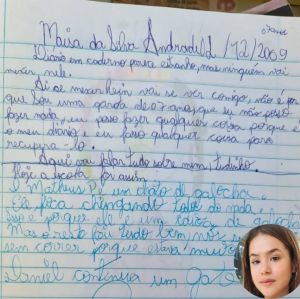 07 anos
Maisa da Silva Andrade 21/12/2009
Diário em caderno parece estranho, mas ninguém vai
mexer nele.
Ai se mexer hein vai se ver comigo, não é por
que sou uma garota de 07 anos que eu não posso
fazer nada, eu posso fazer qualquer coisa porque é
o meu diário e eu faço qualquer coisa para
recupera-lo.
Aqui vou falar tudo sobre mim, tudinho.
Hoje a escola foi assim:
O Matheus P. é um chato de galocha.
Ele fica chingando todos do nada
Mas o resto foi tudo bem, nós
sem correr, porque estava muito
Daniel continua um gato